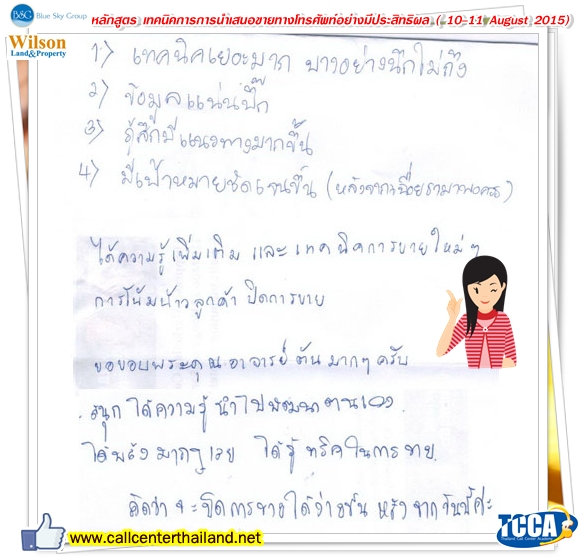 B&G Blue Sky Group หลักสูตร เทคนิคการการนำเสนอขายทางโทรศัพท์อย่างมีประสิทธิผล ( 10-11 August 2015)
Wilson
Land&Property
1) เทคนิคเยอะมาก บางอย่างนึกไม่ถึง
2) ข้อมูลแน่นปึ๊ก
3) รู้สึกมีแนวทางมากขึ้น
4) มีเป้าหมายชัดเจนขึ้น (หลังจากเฉื่อยชามาพอควร)
ได้ความรู้เพิ่มเติม และ เทคนิคการขายใหม่ๆ
การโน้มน้าวลูกค้า ปิดการขาย
ขอขอบพระคุณ อาจารย์ต้น มากๆ ครับ
สนุก ได้ความรู้ นำไปพัฒนาตนเอง
ได้พลังมากๆเลย ได้รู้ ทริคในการขาย
คิดว่าจะปิดการขายได้ง่ายขึ้น หลังจากวันนี้ค่ะ
www.callcenterthailand.net
TCCA
Thailand Call Center Academy